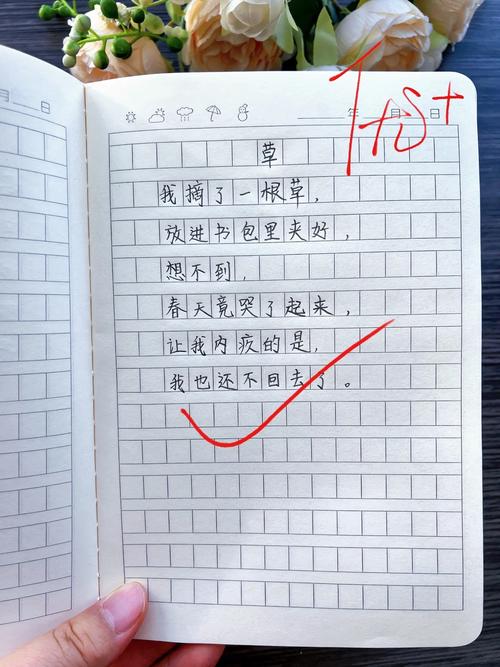 月 日
年 月 日
优+
草
我摘了一根草，
放进书包里夹好，
想不到，
春天竟哭了起来，
让我内疚的是，
我也还不回去了。